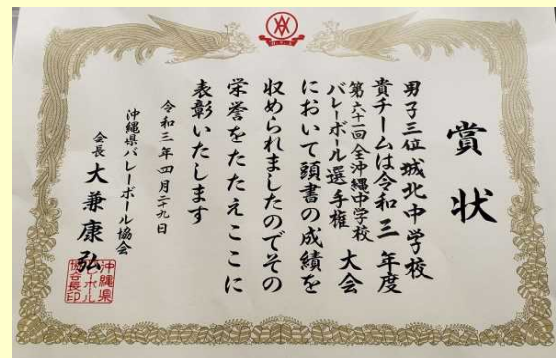 賞状
男子三位 城北中学校
貴チームは令和三年度
第六十一回全沖縄中学校
バレーボール選手権 大会
において頭書の成績を
収められましたのでその
栄誉をたたえここに
表彰いたします
令和三年四月二十九日
沖縄県バレーボール協会
会長 大兼康弘
沖縄県
バレーボール
協会長印